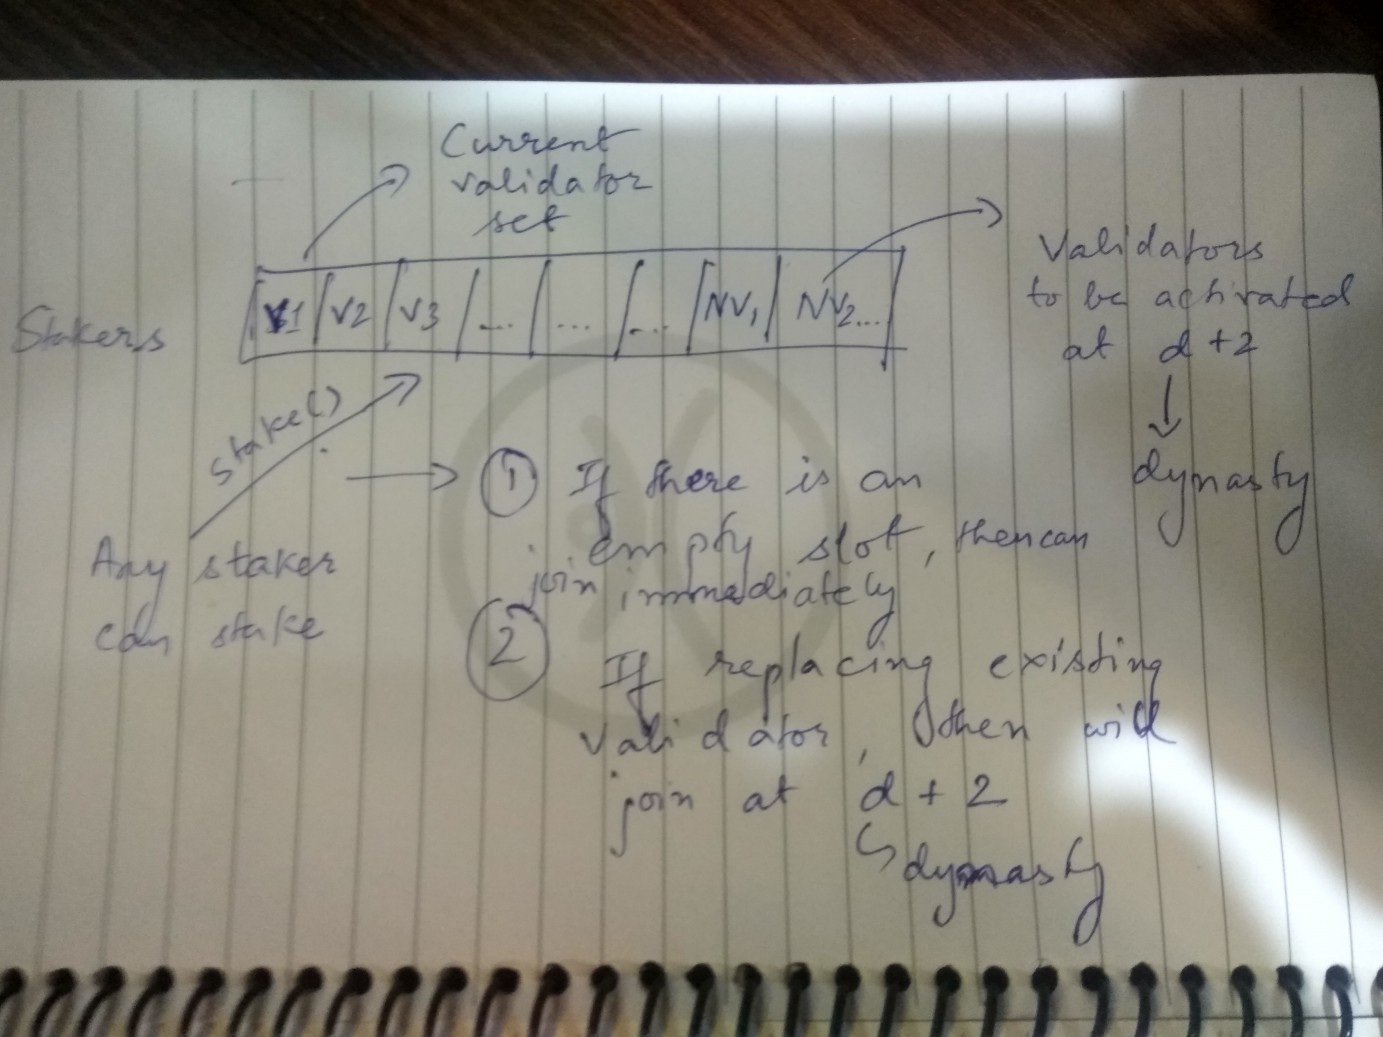 Current
validator
set
Validators
to be activated
at d+2
dynasty
Stakers
V1 V2 V3 ... ... ... NV1 NV2...
stake()
Any staker
can stake
1 If there is an
empty slot, then can
join immediately
2 If replacing existing
validator, then will
join at d+2
dynasty